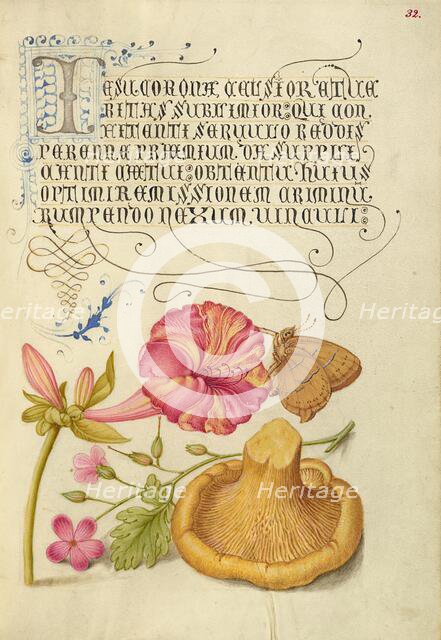 32.
IESU CORONA CELSIOR ET UE
RITAS SUBLIMIOR: QUI CON
FITENTI SERUULO REDDIS
PERENNE PRÆMIUM. DA SUPPLI
CIENTI CÆTUI: OBTENTU HUIUS
OPTIMI REMISSIONEM CRIMINU
RUMPENDO NEXUM UINCULI:
Heritage Heritage Heritage
Heritage Heritage Heritage